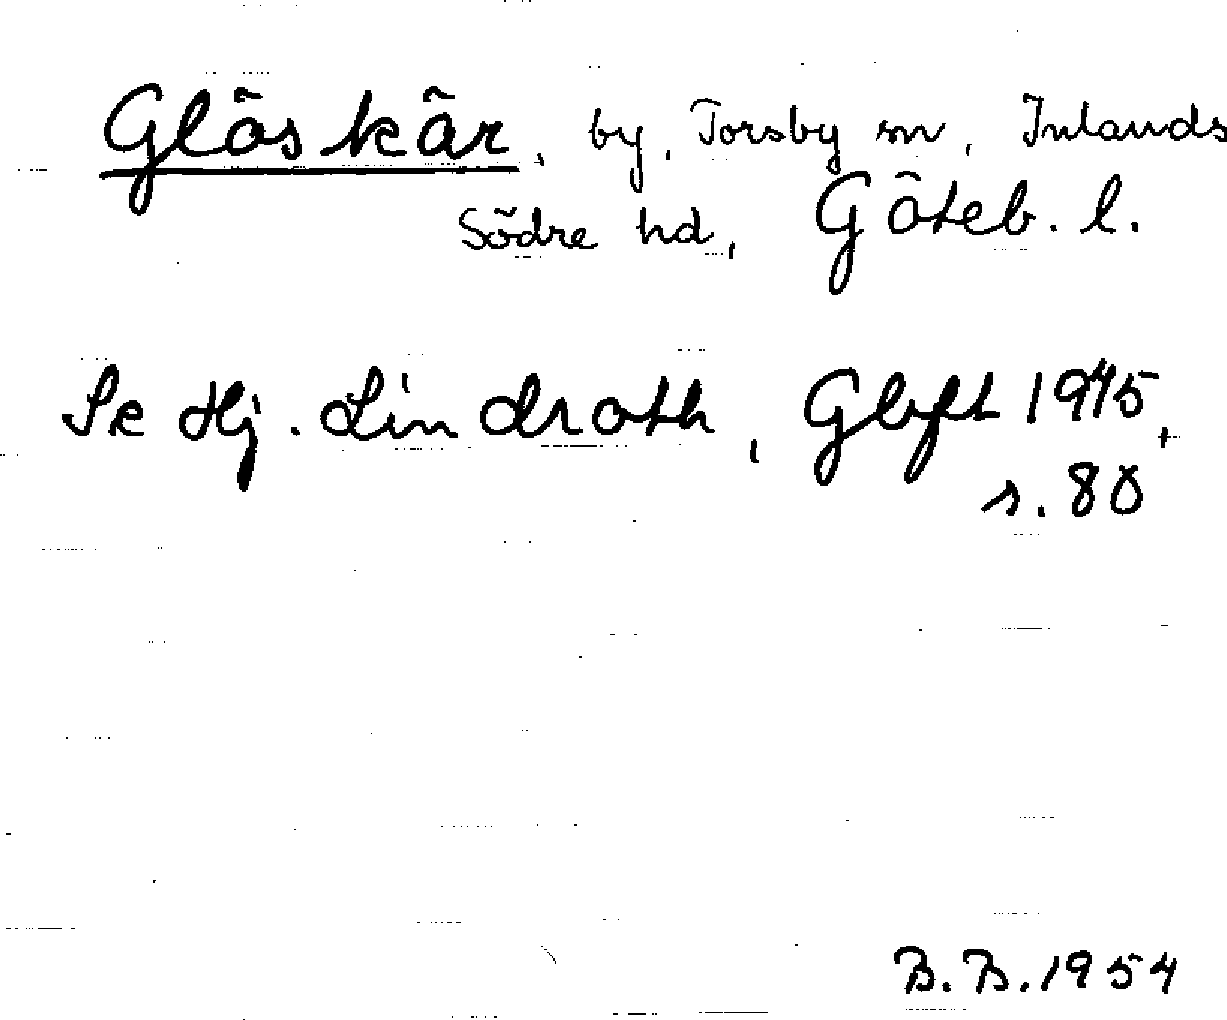 Glöskär, by, Torsby sn, Inlands
Södre hd, Göteb. l.
Se Hj. Lindroth, Gbgft 1945,
s. 80
B.B. 1954